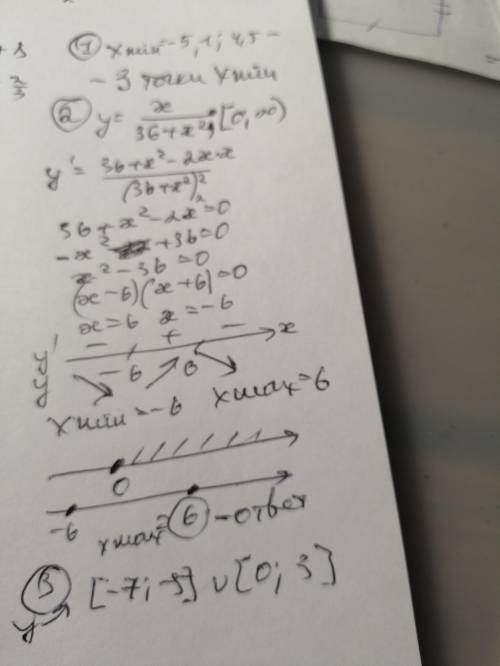 + 1
2/3
① xmin = -5, 1; 4,5 -
- 3 точки Xmin
② y = x/(36+x²); [0, ∞)
y' = (36+x²-2x·x)/(36+x²)²
36+x²-2x²=0
-x² +36=0
x²-36=0
(x-6)(x+6)=0
x=6 x=-6
y' - + - x
y -6 6
xmin=-6 xmax=6
0
-6
xmax = 6 -ответ
③ [-7; -5] ∪ [0; 3]
y ↗